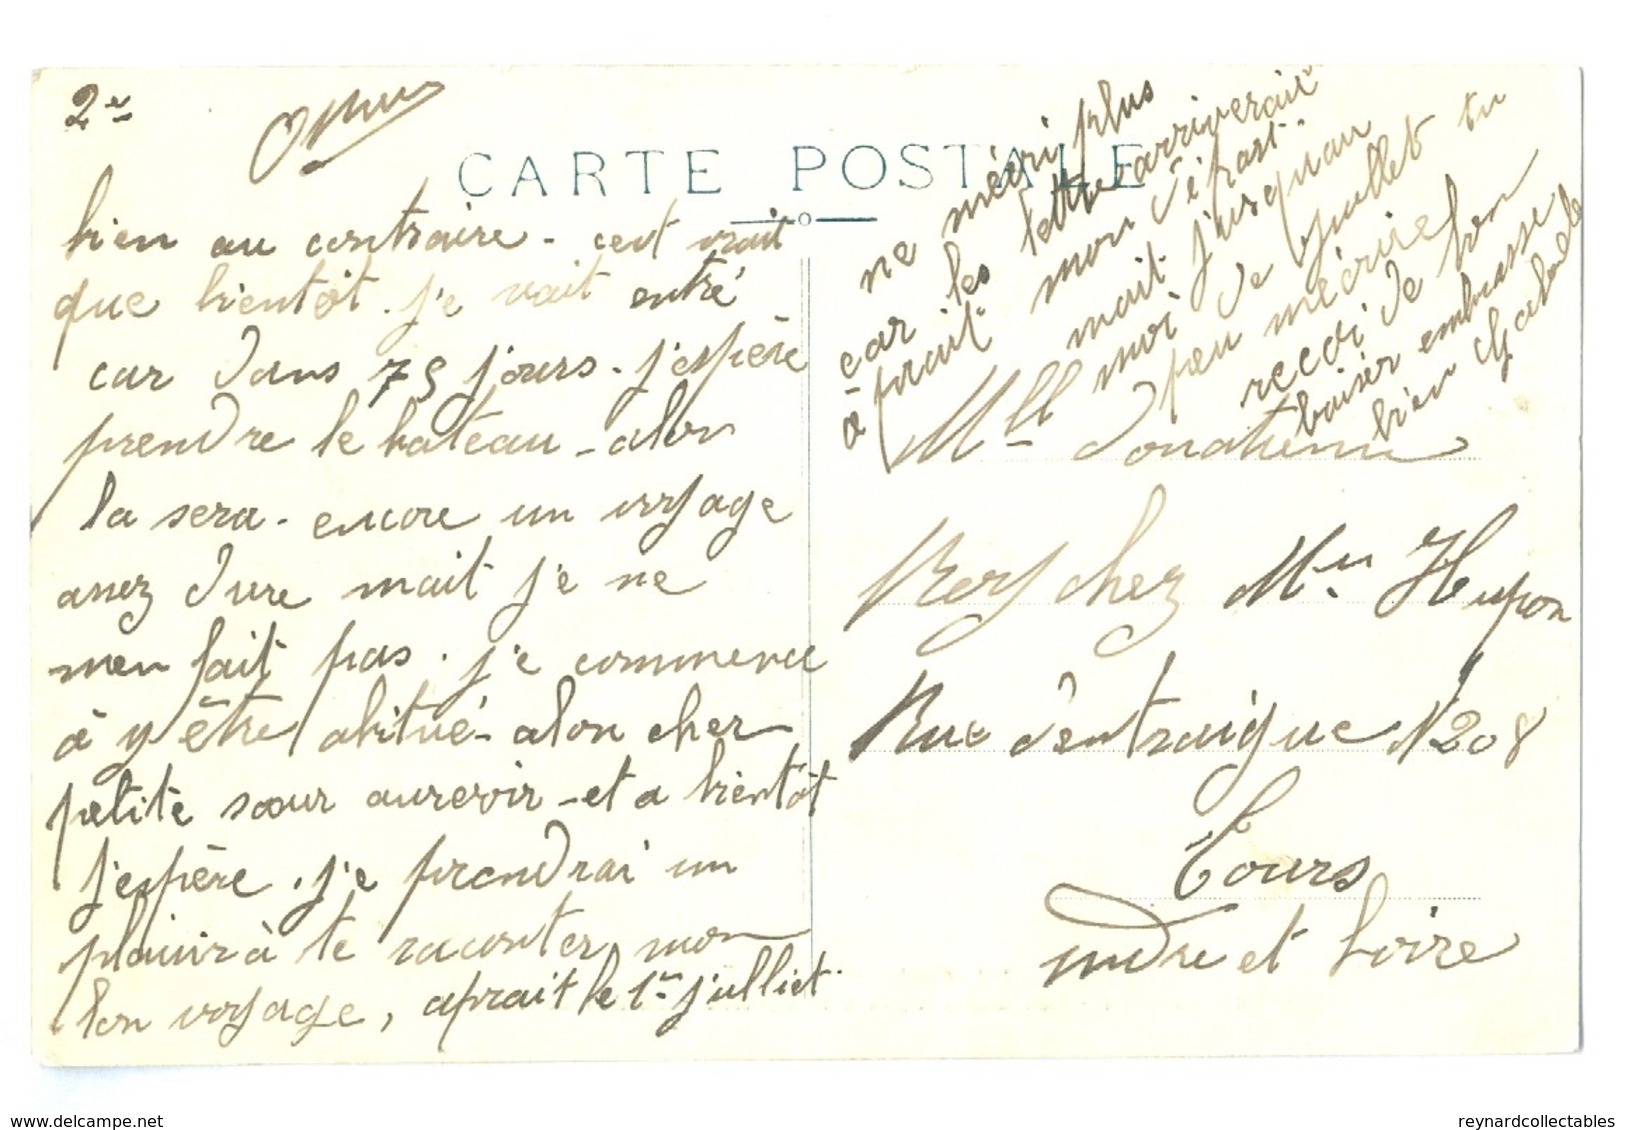 2e
CARTE POSTALE
bien au contraire - cest vrait
que bientôt. je vait entré
car dans 75 jours. j'espère
prendre le bateau - alon
la sera - encore un voyage
assez dure mait je ne
men fait pas. je commence
à y être abitué - alon cher
petite soeur aurevoir - et a bientôt
j'espère. je prendrai un
plaisir à te raconter mon
bon voyage, aprait le 1er julliet.
ne mécri plus
car les lettre arriverait
aprait mon dépast.
mait jusquau
moi de Juillet tu
peu mécrire
recoi de bon
baiser embrasse
bien
Mlle Donatienne
chez Mme Hupon
Rue d'entraigue N 208
Tours
indre et Loire
www.delcampe.net
reynardcollectables